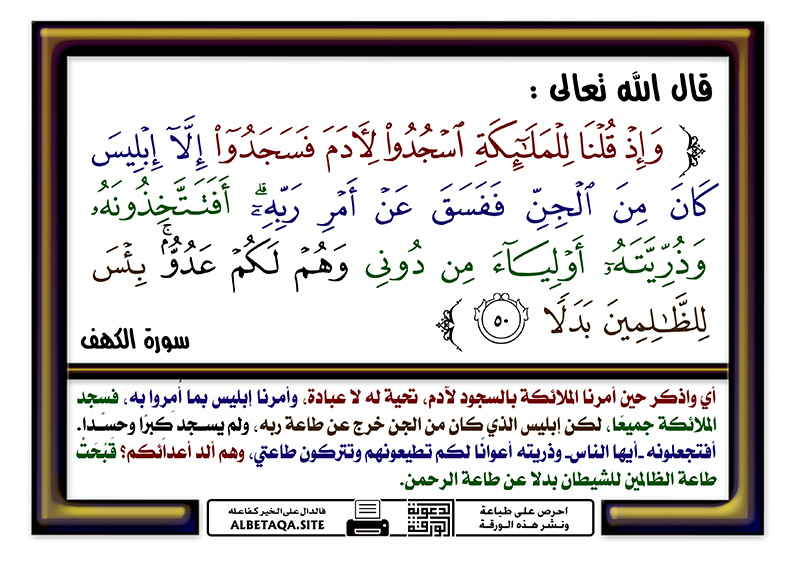 قال الله تعالى :
﴿ وَإِذْ قُلْنَا لِلْمَلَٰٓئِكَةِ ٱسْجُدُوا۟ لِءَادَمَ فَسَجَدُوٓا۟ إِلَّآ إِبْلِيسَ
كَانَ مِنَ ٱلْجِنِّ فَفَسَقَ عَنْ أَمْرِ رَبِّهِۦٓ ۗ أَفَتَتَّخِذُونَهُۥ
وَذُرِّيَّتَهُۥٓ أَوْلِيَآءَ مِن دُونِى وَهُمْ لَكُمْ عَدُوٌّۢ ۚ بِئْسَ
لِلظَّٰلِمِينَ بَدَلًا ٥٠ ﴾
سورة الكهف
أي واذكر حين أمرنا الملائكة بالسجود لآدم، تحية له لا عبادة، وأمرنا إبليس بما أُمِروا به، فسجد
الملائكة جميعًا، لكن إبليس الذي كان من الجن خرج عن طاعة ربه، ولم يسجد كِبرًا وحسدا.
أفتجعلونه -أيها الناس- وذريته أعوانًا لكم تطيعونهم وتتركون طاعتي، وهم ألد أعدائكم؟ قَبُحَتْ
طاعة الظالمين للشيطان بدلا عن طاعة الرحمن.
احرص على طباعة
ونشر هذه الورقة
الورقة الدعوية
فالدال على الخير كفاعله
ALBETAQA.SITE